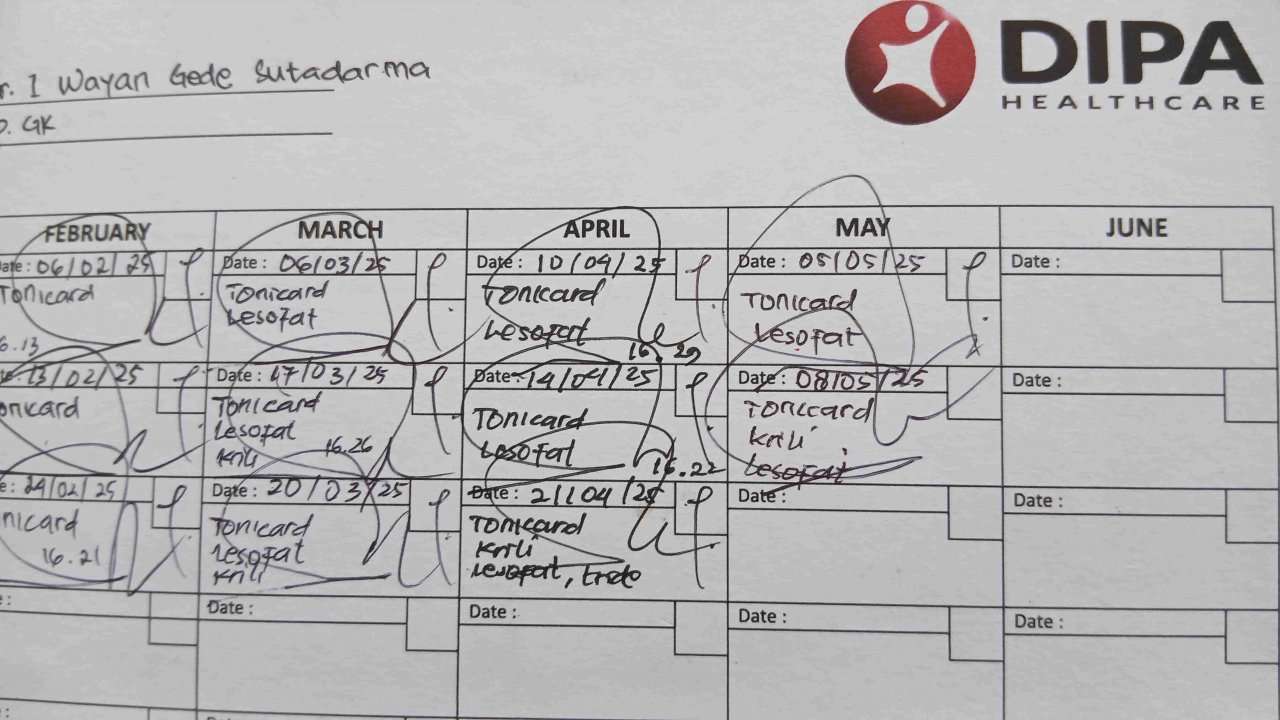 DIPA
HEALTHCARE
r. I Wayan Gede Sutadarma
GK
FEBRUARY MARCH APRIL MAY JUNE
Date : 06/02/25 Date : 06/03/25 Date : 10/04/25 Date : 05/05/25 Date :
Tonicard Tonicard Tonicard Tonicard
Lesofat Lesofat Lesofat
6.13 16 29
13/02/25 Date : 17/03/25 Date : 14/04/25 Date : 08/05/25 Date :
onicard Tonicard Tonicard Tonicard
Lesofat Lesofat Krili
Krili 16.26 16.22 Lesofat
e : 24/02/25 Date : 20/03/25 Date : 21/04/25 Date : Date :
nicard Tonicard Tonicard
16.21 Lesofat Krili
Krili Lesofat,
: Date : Date : Date : Date :